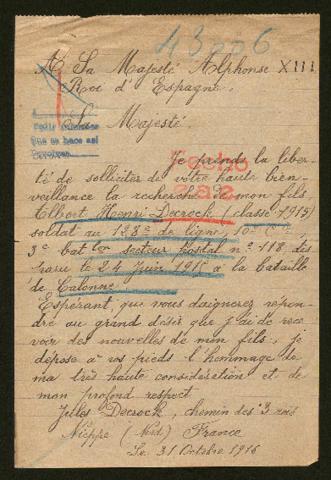 43006
A Sa Majesté Alphonse XIII
Roi d'Espagne.
Sa Majesté.
Je prends la liber-
té de solliciter de votre haute bien-
veillance la recherche de mon fils
Elbert Henri Decrock (classe 1915)
soldat au 128e de ligne, 10e Cie
3e bat lon secteur Postal n° 118, dis
paru le 24 Juin 1915 à la bataille
de Calonne.
Espérant, que vous daignerez repon-
dre au grand désir que j'ai de rece
voir des nouvelles de mon fils, je
dépose à vos pieds l'hommage de
ma très haute considération et de
mon profond respect.
Jules Decrock, chemin des 3 rois
Nieppe (Nord) France
Le 31 Octobre 1916